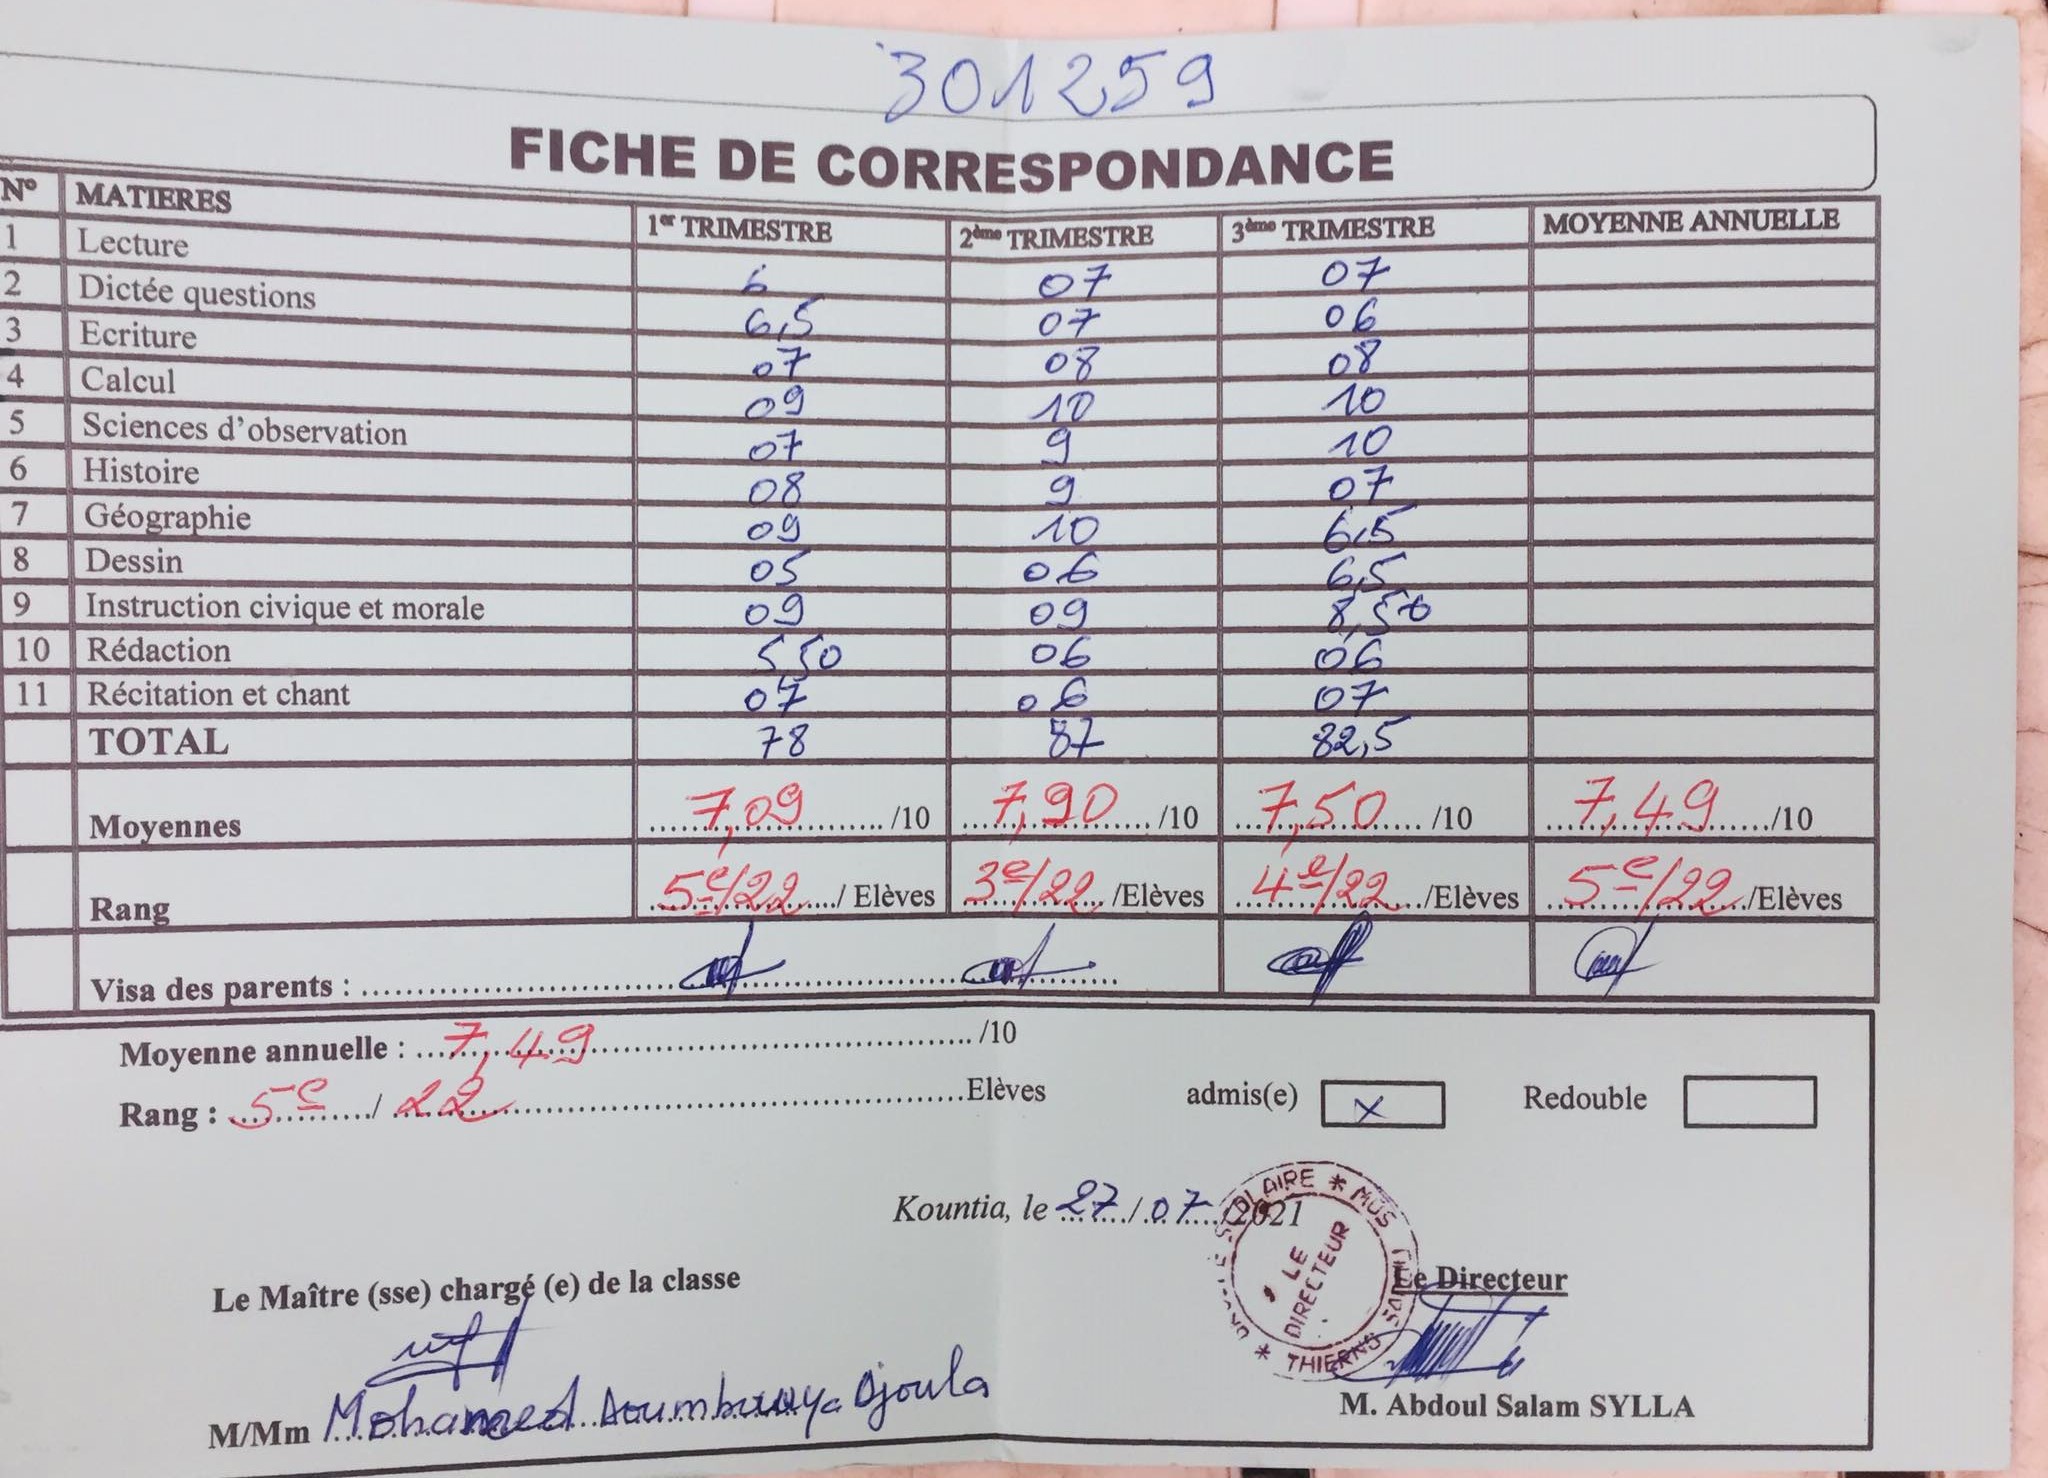 301259
FICHE DE CORRESPONDANCE
N° MATIERES 1er TRIMESTRE 2ème TRIMESTRE 3ème TRIMESTRE MOYENNE ANNUELLE
1 Lecture 6 07 07
2 Dictée questions 6,5 07 06
3 Ecriture 07 08 08
4 Calcul 09 10 10
5 Sciences d'observation 07 9 10
6 Histoire 08 9 07
7 Géographie 09 10 6,5
8 Dessin 05 06 6,5
9 Instruction civique et morale 09 09 8,50
10 Rédaction 5,50 06 06
11 Récitation et chant 07 06 07
TOTAL 78 87 82,5
Moyennes 7,09 /10 7,90 /10 7,50 /10 7,49 /10
Rang 5e/22 / Elèves 3e/22 /Elèves 4e/22 /Elèves 5e/22 /Elèves
Visa des parents :
Moyenne annuelle : 7,49 /10
Rang : 5e / 22 Elèves admis(e) X Redouble
Kountia, le 27/07/2021
SCOLAIRE * MUS
LE DIRECTEUR
* THIERNO
Le Maître (sse) chargé (e) de la classe Le Directeur
M/Mm Mohamed Doumbouya Djoula M. Abdoul Salam SYLLA